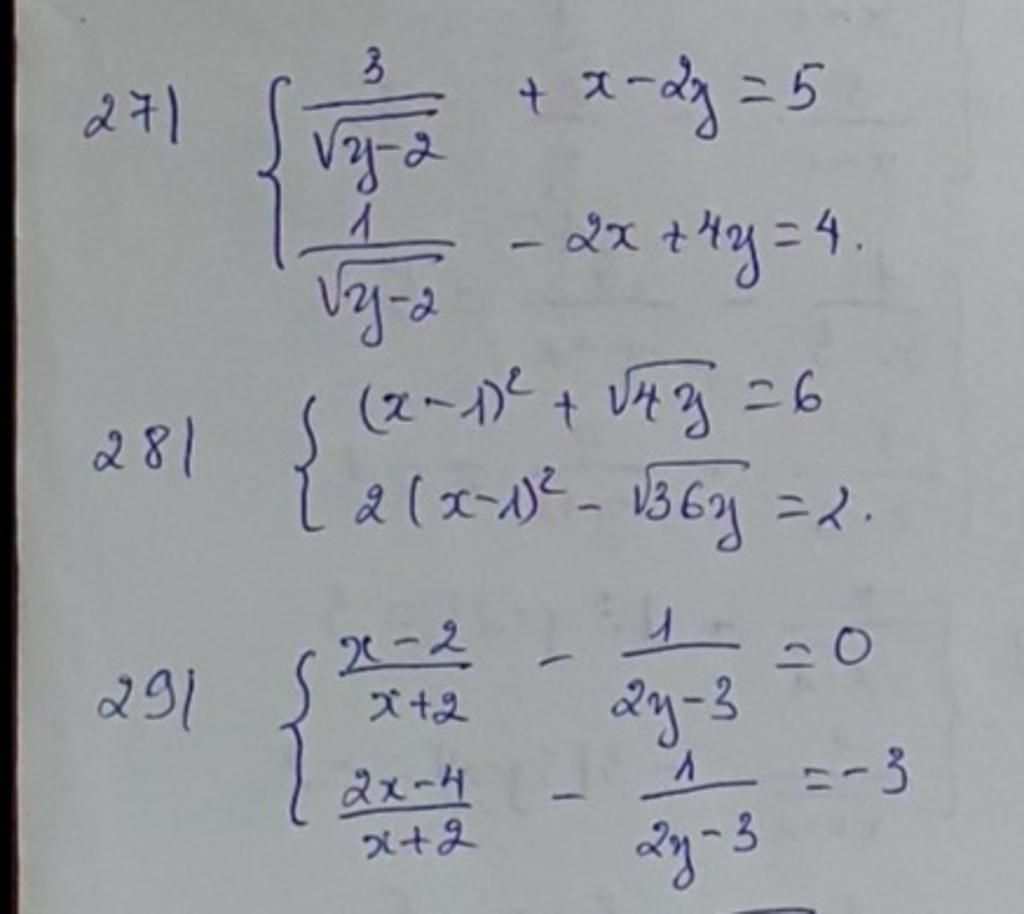 27) { 3/√(y-2) + x-2y = 5
1/√(y-2) - 2x + 4y = 4.
28) { (x-1)² + √(4y) = 6
2(x-1)² - √(36y) = 2.
29) { (x-2)/(x+2) - 1/(2y-3) = 0
(2x-4)/(x+2) - 1/(2y-3) = -3